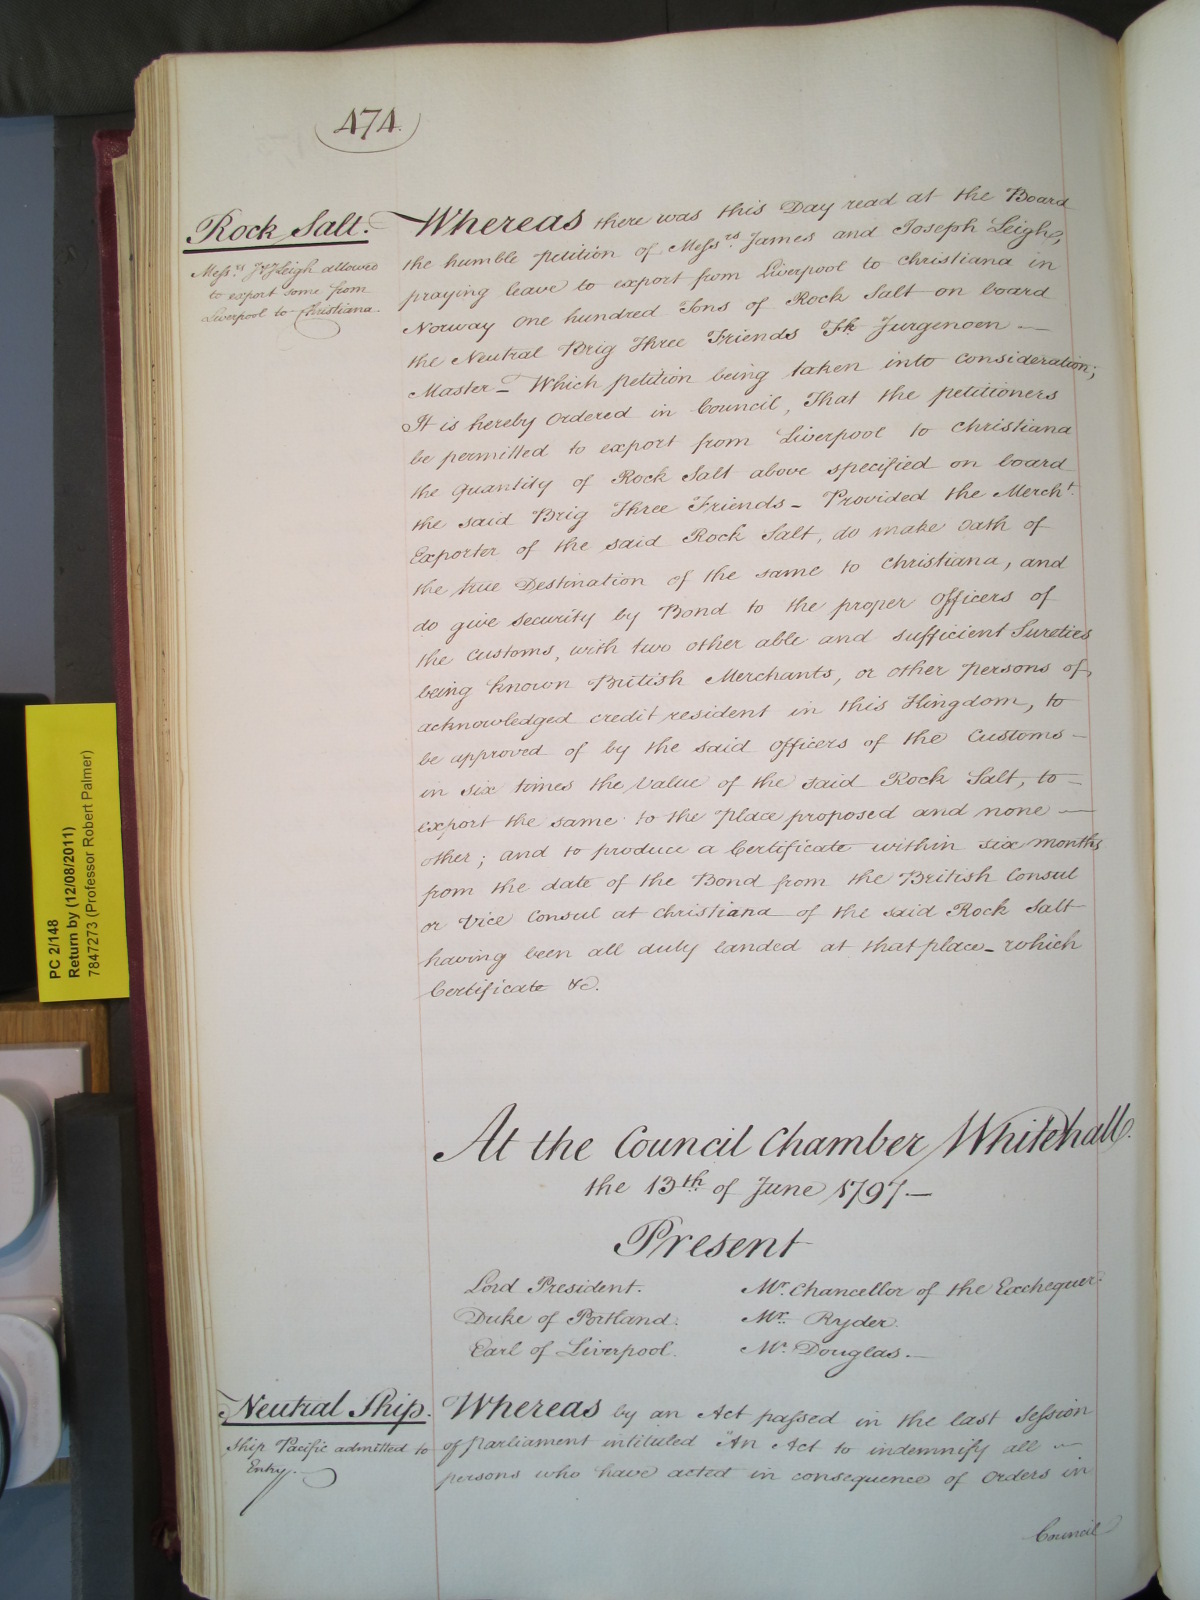 474.
Rock Salt.
Messrs. J & J Leigh allowed
to export some from
Liverpool to Christiana.
Whereas there was this Day read at the Board
the humble petition of Messrs. James and Joseph Leigh,
praying leave to export from Liverpool to Christiana in
Norway One hundred Tons of Rock Salt on board
the Neutral Brig Three Friends Fk. Jurgensen —
Master — Which petition being taken into consideration;
It is hereby Ordered in Council, That the petitioners
be permitted to export from Liverpool to Christiana
the Quantity of Rock Salt above specified on board
the said Brig Three Friends — Provided the Mercht.
Exporter of the said Rock Salt, do make Oath of
the true Destination of the same to Christiana, and
do give security by Bond to the proper Officers of
the Customs, with two other able and sufficient Sureties
being known British Merchants, or other persons of
acknowledged credit resident in this Kingdom, to
be approved of by the said Officers of the Customs —
in six times the Value of the said Rock Salt, to —
export the same to the Place proposed and none —
other; and to produce a Certificate within six months
from the date of the Bond from the British Consul
or Vice Consul at Christiana of the said Rock Salt
having been all duly landed at that place — which
Certificate &c.
At the Council Chamber Whitehall.
the 13th of June 1797 —
Present
Lord President. Mr. Chancellor of the Exchequer.
Duke of Portland. Mr. Ryder.
Earl of Liverpool. Mr. Douglas. —
Neutral Ship.
Ship Pacific admitted to
Entry.
Whereas by an Act passed in the last Session
of Parliament intituled "An Act to indemnify all —
persons who have acted in consequence of Orders in
Council
PC 2/148
Return by (12/08/2011)
7847273 (Professor Robert Palmer)